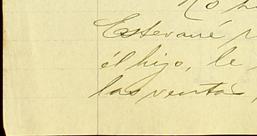 No h
Estevané
él hijo, le
las ventas,